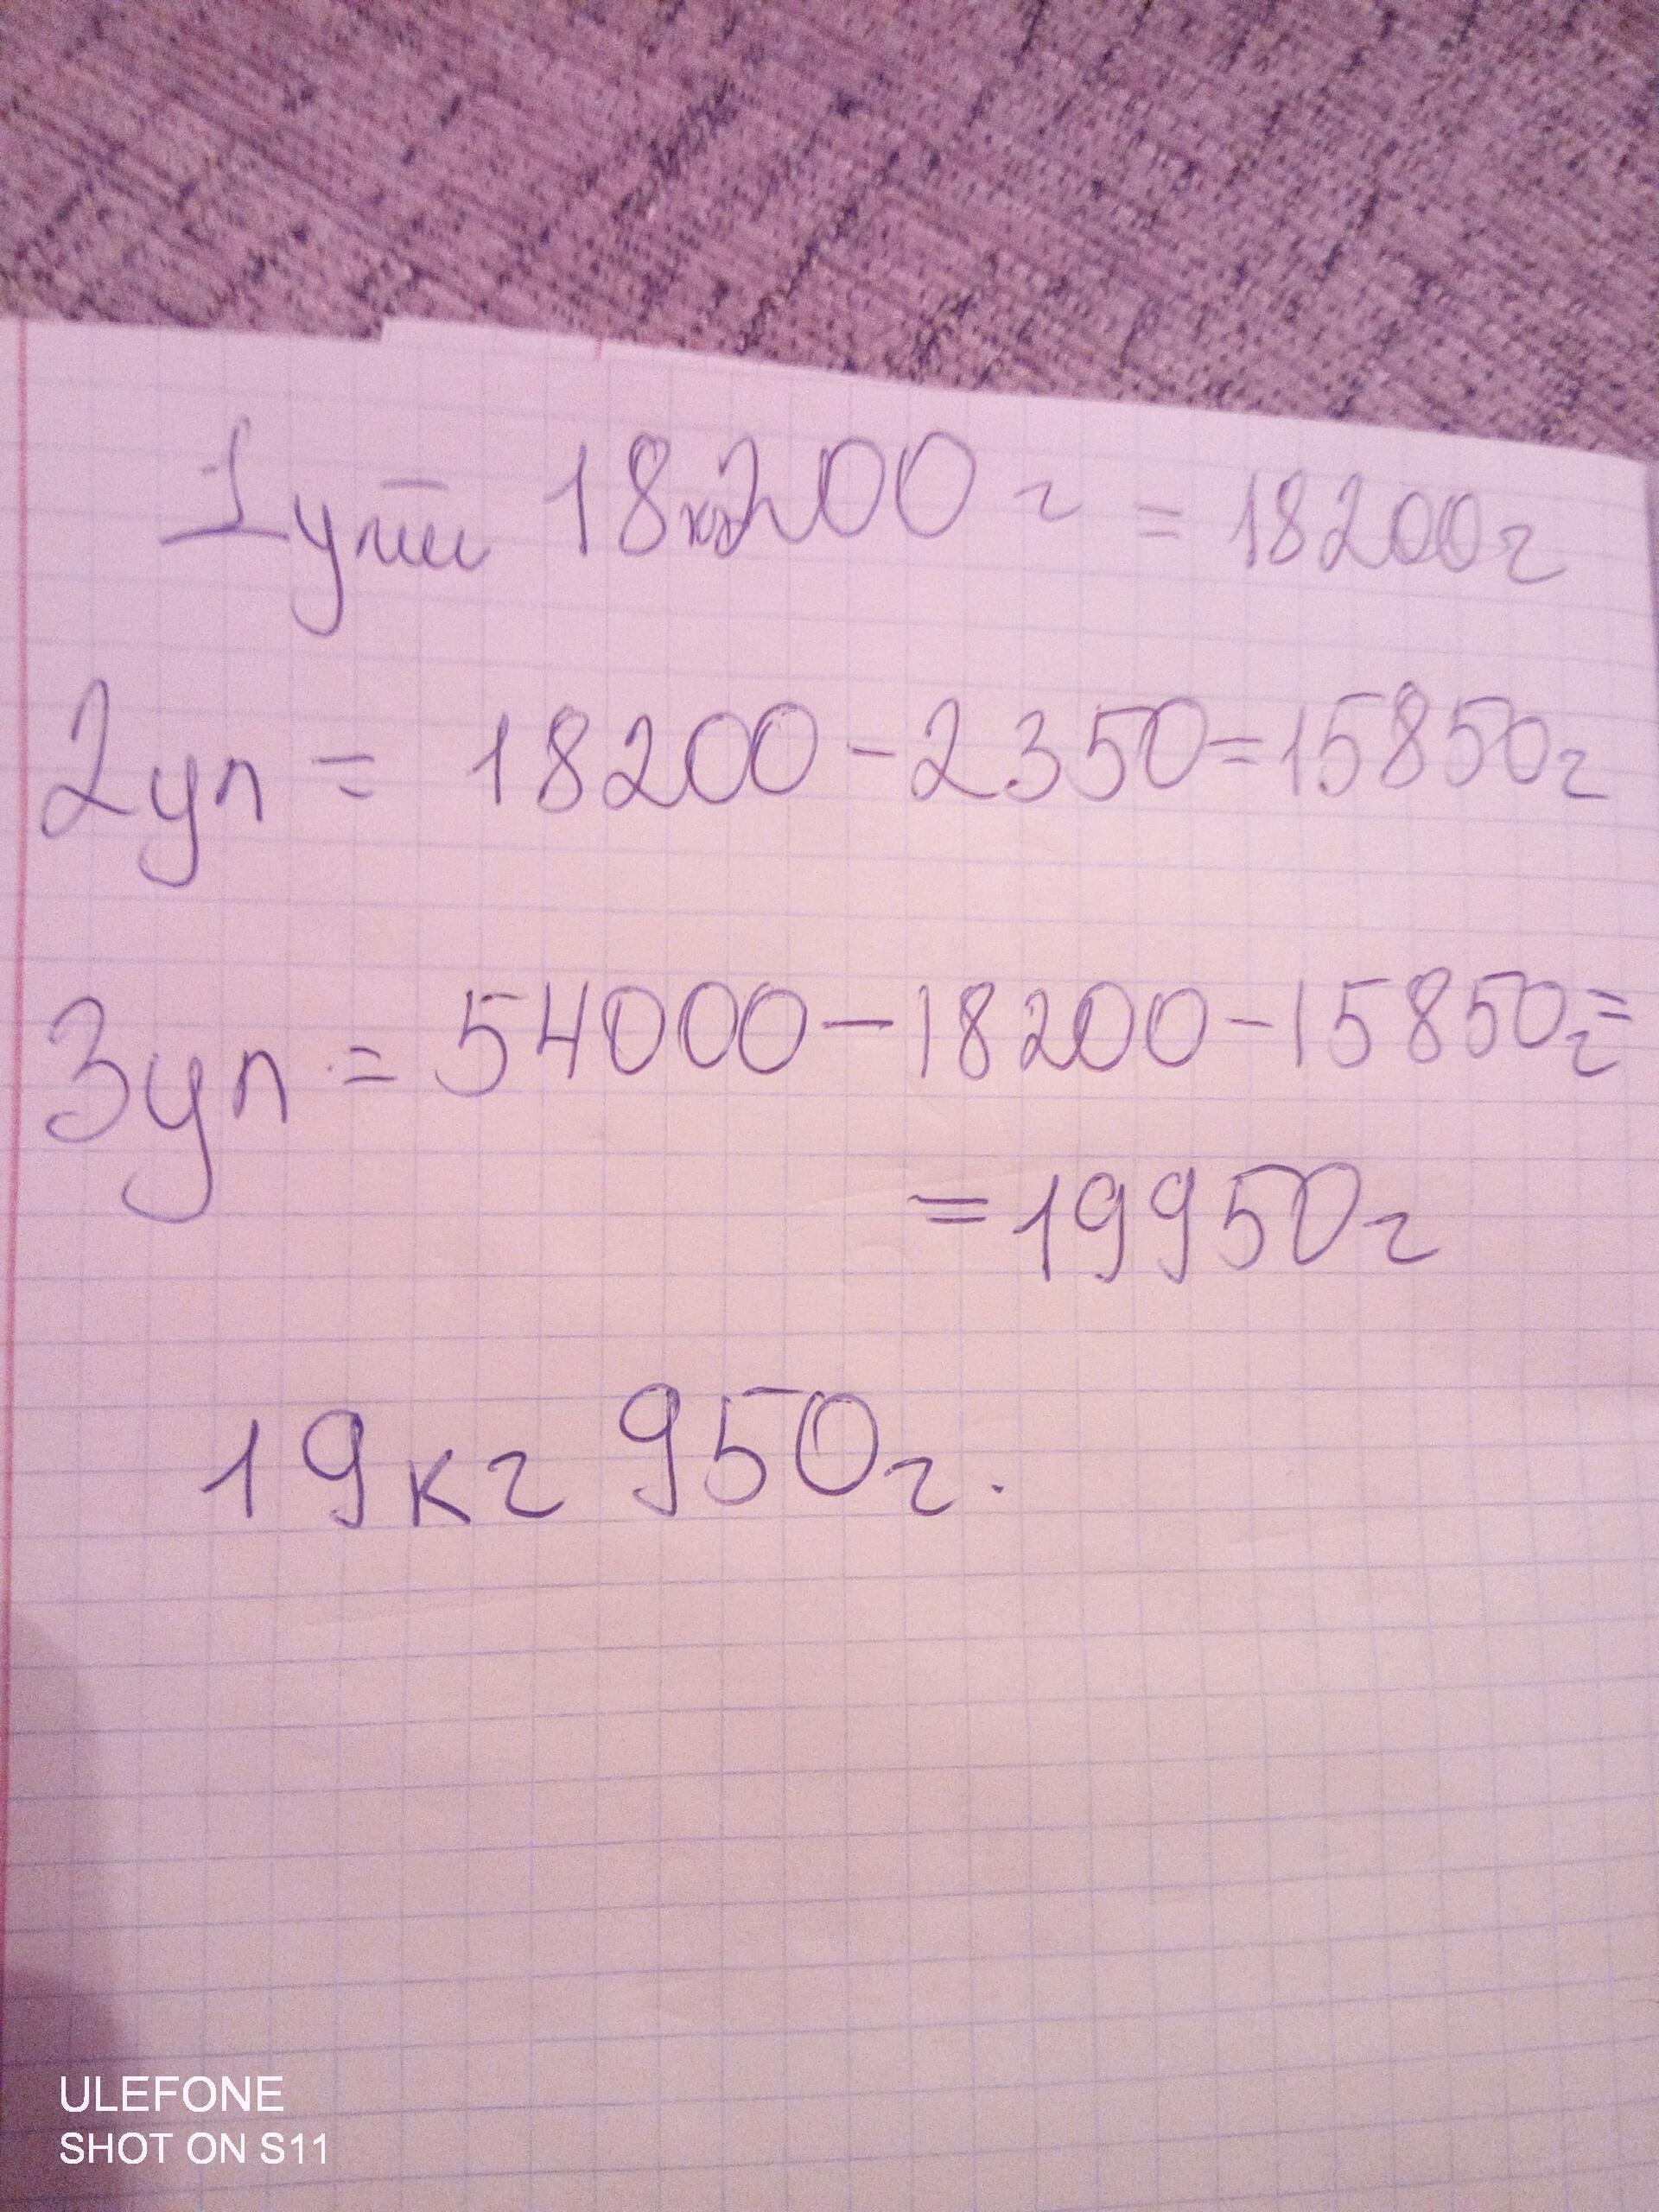 18кг200г = 18200г
2ул = 18200-2350=15850г
3ул = 54000-18200-15850г=
=19950г
19кг 950г.
ULEFONE
SHOT ON S11